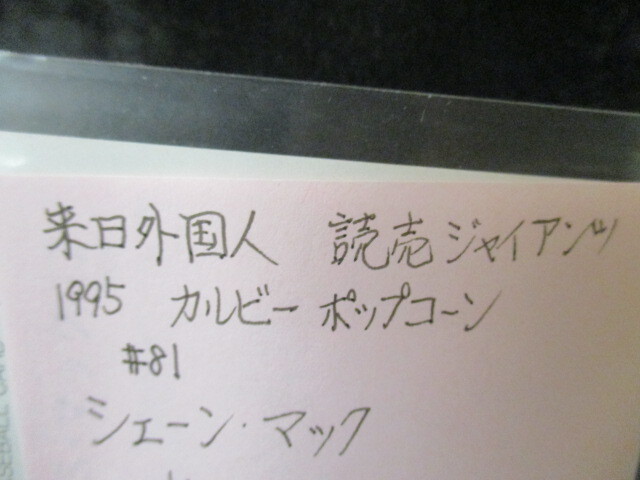 来日外国人 読売ジャイアンツ
1995 カルビー ポップコーン
#81
シェーン・マック